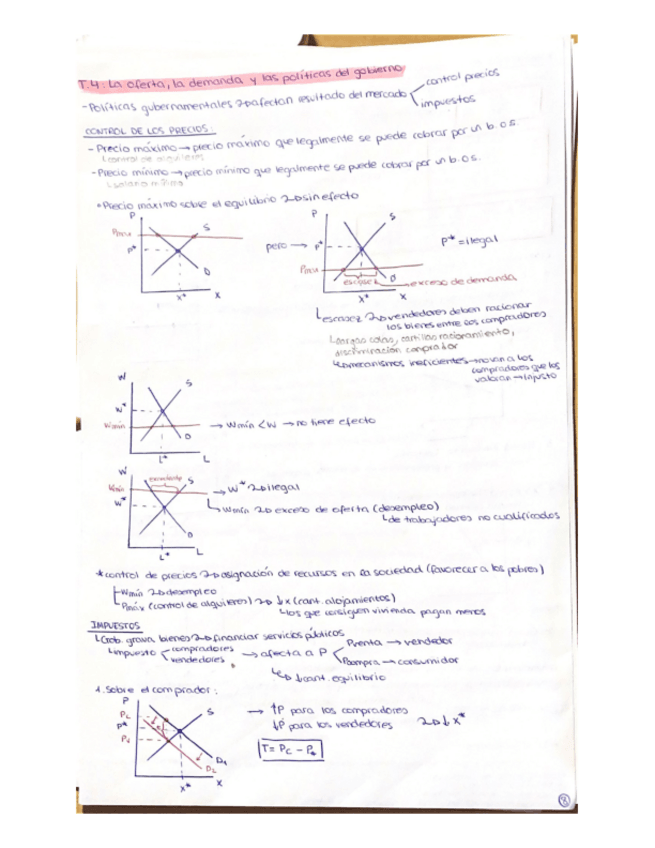 T.4: La oferta, la demanda y las políticas del gobierno
- Políticas gubernamentales afectan resultado del mercado
control precios
impuestos
CONTROL DE LOS PRECIOS:
- Precio máximo → precio máximo que legalmente se puede cobrar por un b. o s.
control de alquileres
- Precio mínimo → precio mínimo que legalmente se puede cobrar por un b. o s.
salario mínimo
* Precio máximo sobre el equilibrio sin efecto
P
Pmax
P*
S
D
X*
X
pero →
P
P*
Pmax
S
D
escasez
exceso de demanda
X*
X
P* = ilegal
escasez vendedores deben racionar
los bienes entre los compradores
largas colas, cartillas racionamiento,
discriminación comprador
mecanismos ineficientes → no van a los
compradores que los
valoran → injusto
W
W*
Wmín
S
D
L*
L
→ Wmín < W → no tiene efecto
W
Wmín
W*
excedente
S
D
L*
L
→ W* ilegal
Wmín exceso de oferta (desempleo)
de trabajadores no cualificados
* control de precios asignación de recursos en la sociedad (favorecer a los pobres)
Wmín desempleo
Pmáx (control de alquileres) ↓x (cant. alojamientos)
los que consiguen vivienda pagan menos
IMPUESTOS
Gob. grava bienes financiar servicios públicos
impuesto
compradores
vendedores
→ afecta a P
Pventa → vendedor
Pcompra → consumidor
↓cant. equilibrio
1. Sobre el comprador:
P
P*
S
D1
D2
X*
X
→ ↑P para los compradores
↓P para los vendedores
↓x*
8